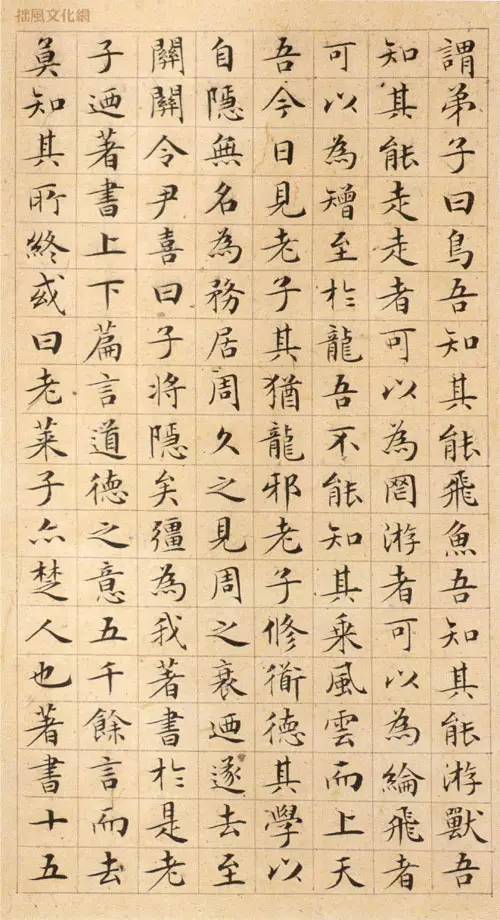 拙風文化網
謂弟子曰鳥吾知其能飛魚吾知其能游獸吾
知其能走走者可以為罔游者可以為綸飛者
可以為矰至於龍吾不能知其乘風雲而上天
吾今日見老子其猶龍邪老子修衜德其學以
自隱無名為務居周久之見周之衰迺遂去至
關關令尹喜曰子將隱矣彊為我著書於是老
子迺著書上下篇言道德之意五千餘言而去
莫知其所終或曰老萊子亦楚人也著書十五